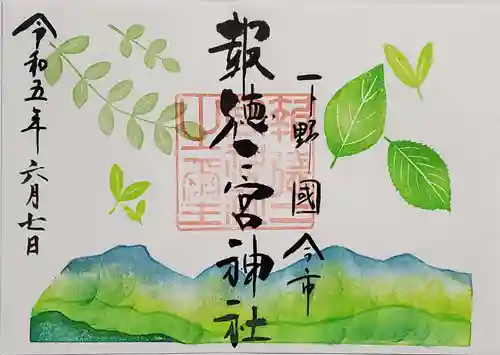 下野國
今市
報徳二宮神社
令和五年六月七日